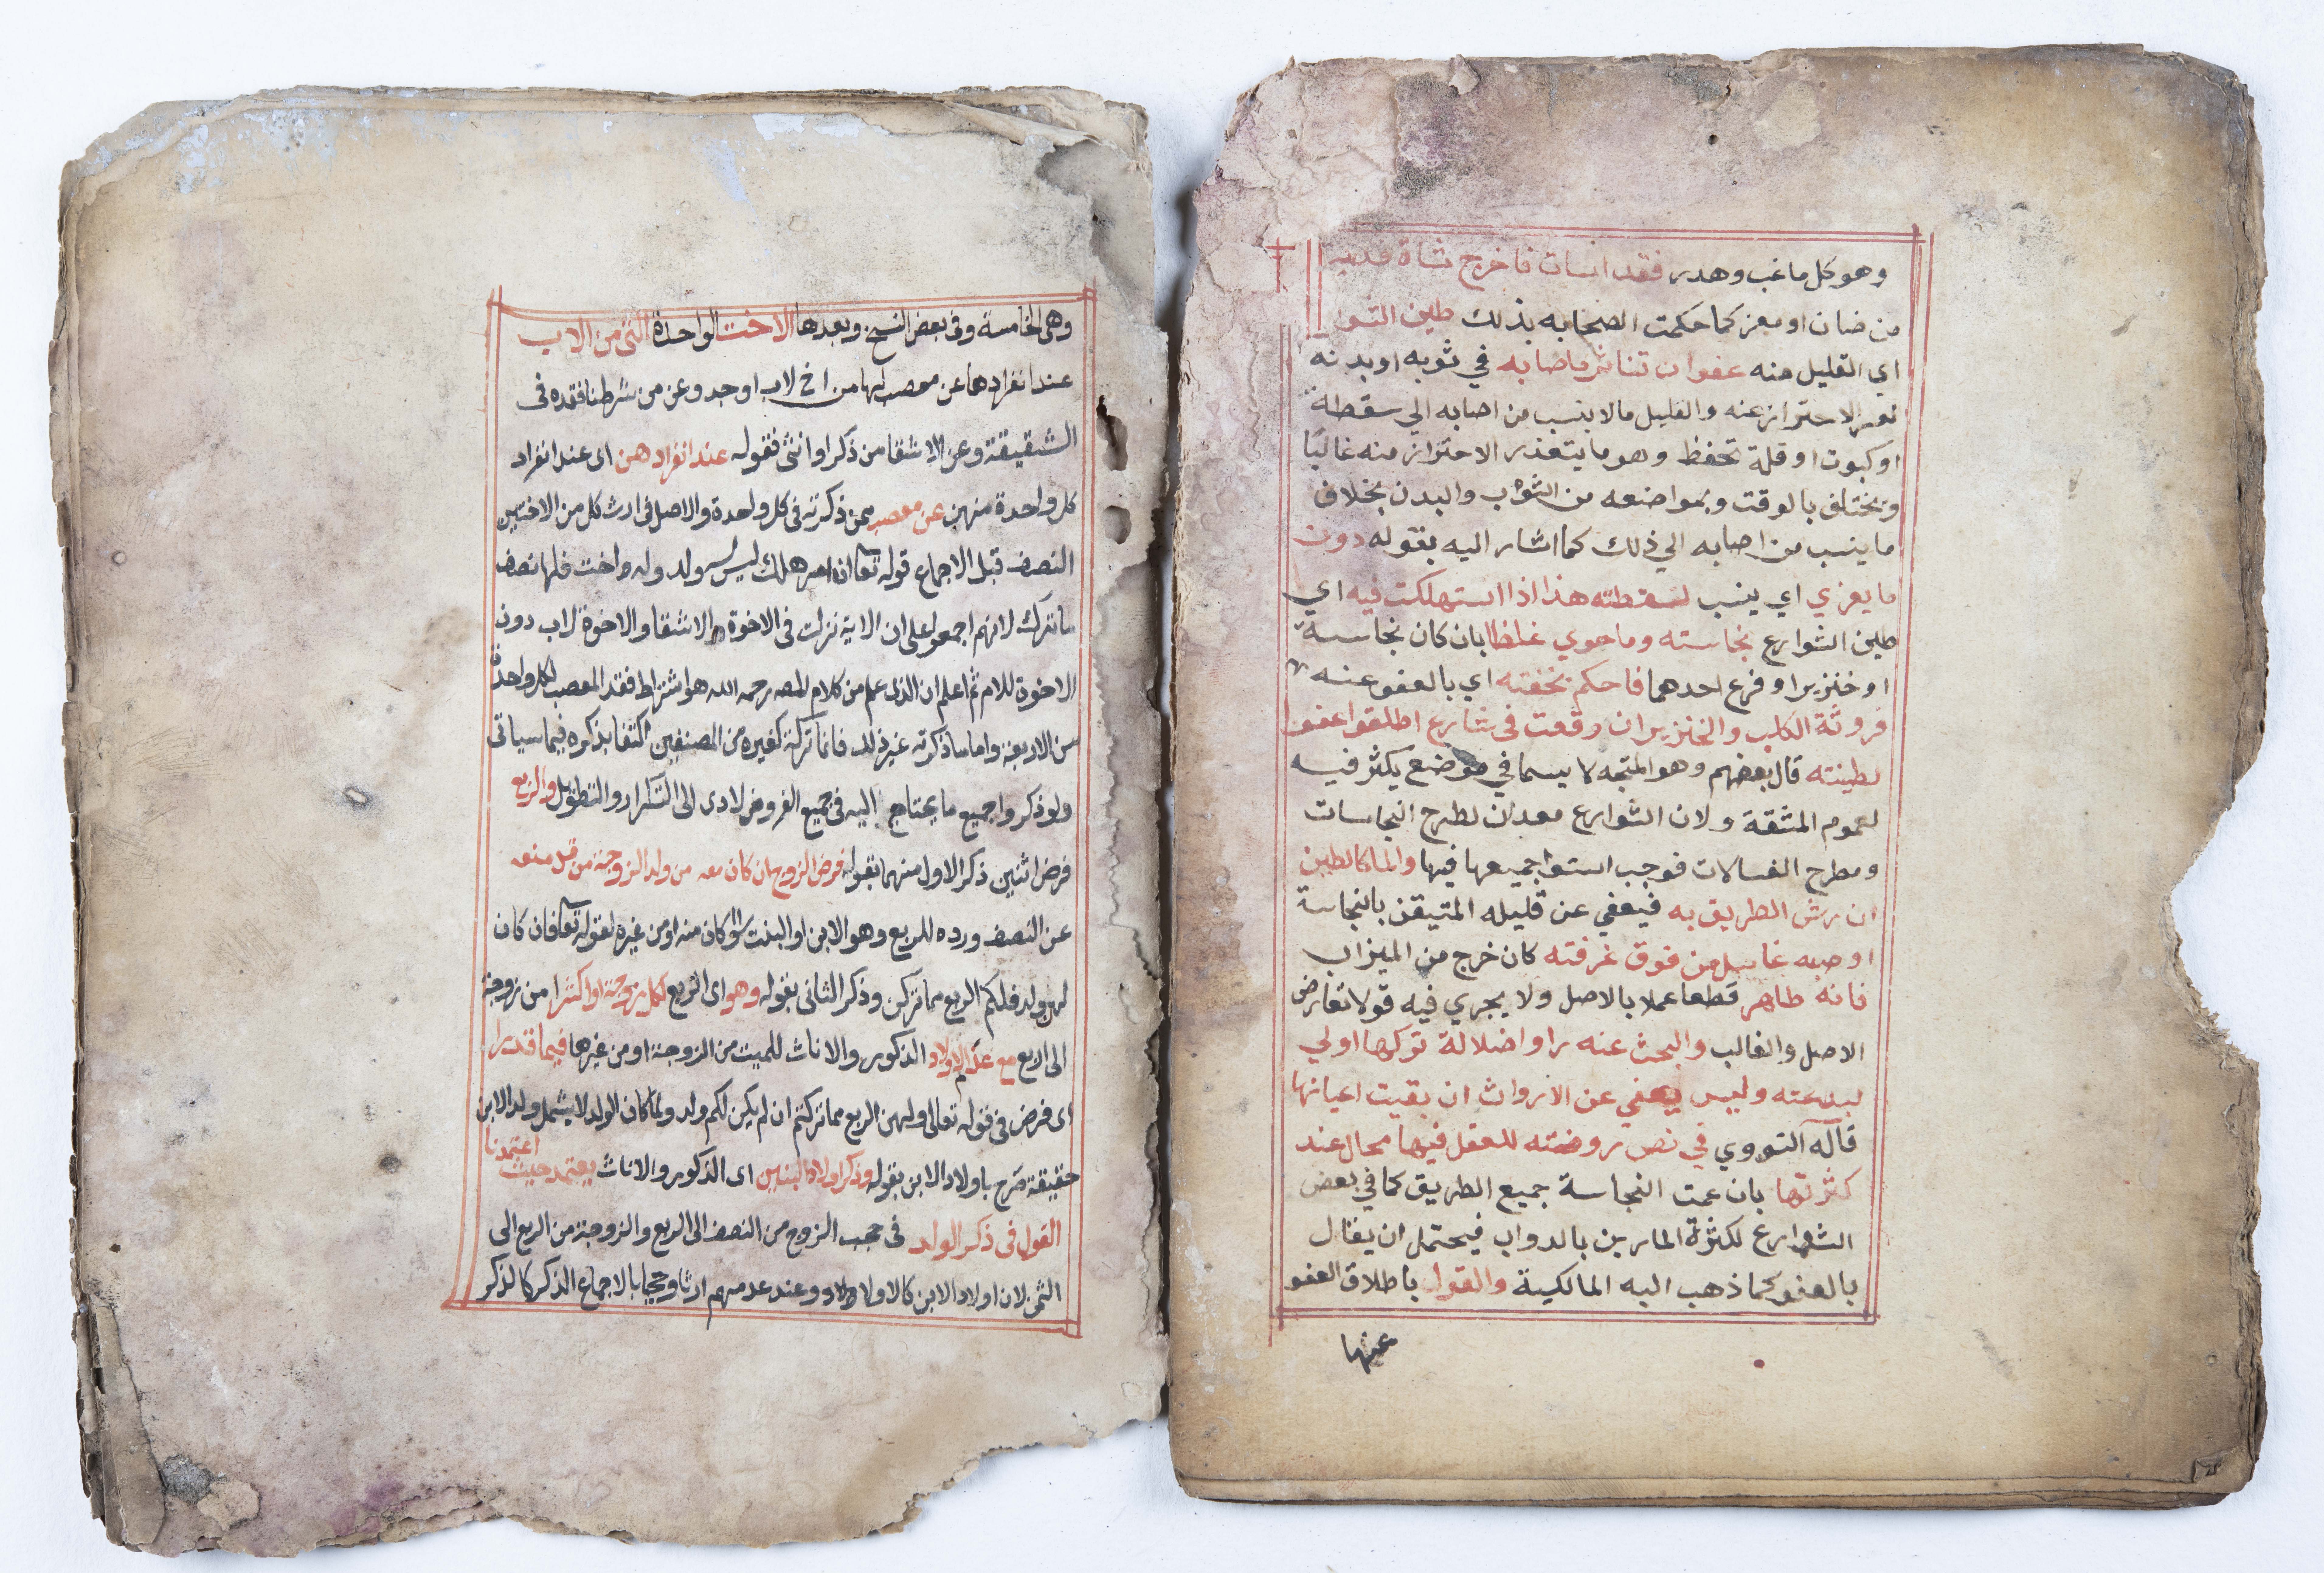 وهو كل ما عب وهدر فقد اسات فاخرج شاة فدية
من ضان او معز كما حكمت الصحابه بذلك طين الشوا
اي القليل منه عفوا ان تناثر ما صابه في ثوبه او بدنه
الاحتراز عنه والقليل ما لا ينسب من اصابه الي سقطة
او كبوت او قلة تحفظ وهو ما يتعذر الاحتراز منه غالبًا
ويختلف بالوقت وبمواضعه من الثواب والبدن بخلاف
ما ينسب من اصابه الي ذلك كما اشار اليه بقوله دون
ما يعزي اي ينسب لسقطته هذا اذا استهلكت فيه اي
طين الشوارع نجاسته وما حوي غلظا بان كان نجاسة
او خنزيرا او فرع احدهما فاحكم بخفته اي بالعفو عنه
فروثة الكلب والخنزير ان وقعت في شارع اطلقوا عفوا
لطينته قال بعضهم وهو المتجه لا يسما في موضع يكثر فيه
لعموم المشقة ولان الشوارع معدان لطرح النجاسات
ومطرح الغسالات فوجب استوا جميعها فيها والما كالطين
ان رش الطريق به فيعفي عن قليله المتيقن بالنجاسة
او صبه غاسل من فوق غرفته كان خرج من الميزاب
فانه طاهر قطعا عملا بالاصل ولا يجري فيه قولا تعارض
الاصل والغالب والبحث عنه را واضلالة تركها اولي
لبدعته وليس يعفي عن الارواث ان بقيت اعيانها
قاله النووي في نص روضته للعقل فيها مجال عند
كثرتها بان عمت النجاسة جميع الطريق كما في بعض
الشوارع لكثرة المارين بالدواب فيحتمل ان يقال
بالعفو كما ذهب اليه المالكية والقول باطلاق العفو
عنها
وهي الخامسة وفي بعض النسخ وبعدها الاخت الواحدة التي من الاب
عند انفرادها عن معصب لها من اخ لاب او جد وعن من شرطنا فقده في
الشقيقة وعن الاشقا من ذكر او انثى فقوله عند انفرادهن اى عند انفراد
كل واحدة منهن عن معصب ممن ذكرته في كل واحدة والاصل في ارث كل من الاختين
النصف قبل الاجماع قوله تعا ان امر هلك ليس له ولد وله اخت فلها نصف
ما ترك لانهم اجمعوا على ان الاية نزلت في الاخوة الاشقا والاخوة لاب دون
الاخوة للام ثم اعلم ان الذى علم من كلام المصه رحمه الله هو اشتراط فقد المعصب لكل واحدة
من الاربعة واما ما ذكرته غير ذلك فانما تركه كغيره من المصنفين اكتفا بذكره فيما سياتى
ولو ذكروا جميع ما يحتاج اليه في جميع الفروض لادى الى التكرار والتطويل والربع
فرض اثنين ذكر الاول منهما بقوله فرض الزوج ان كان معه من ولد الزوجة من قد منعه
عن النصف ورده للربع وهو الابن او البنت سوا كان منه او من غيره لقوله تعا فان كان
لهن ولد فلكم الربع مما تركن وذكر الثاني بقوله وهو اى الربع لكل زوجة او اكثرا من زوجة
الى الاربع مع عدم الاولاد الذكور والاناث للميت من الزوجة او من غيرها فيما قدرا
اى فرض في قوله تعالى ولهن الربع مما تركتم ان لم يكن لكم ولد ولما كان الولد لا يشمل ولد الابن
حقيقة صرح باولاد الابن بقوله وذكر اولاد البنين اى الذكور والاناث يعتمد حيث اعتمدنا
القول في ذكر الولد في حجب الزوج من النصف الى الربع والزوجة من الربع الى
الثمن لان اولاد الابن كالاولاد وعند عدمهم ارثا وحجبا بالاجماع الذكر كالذكر